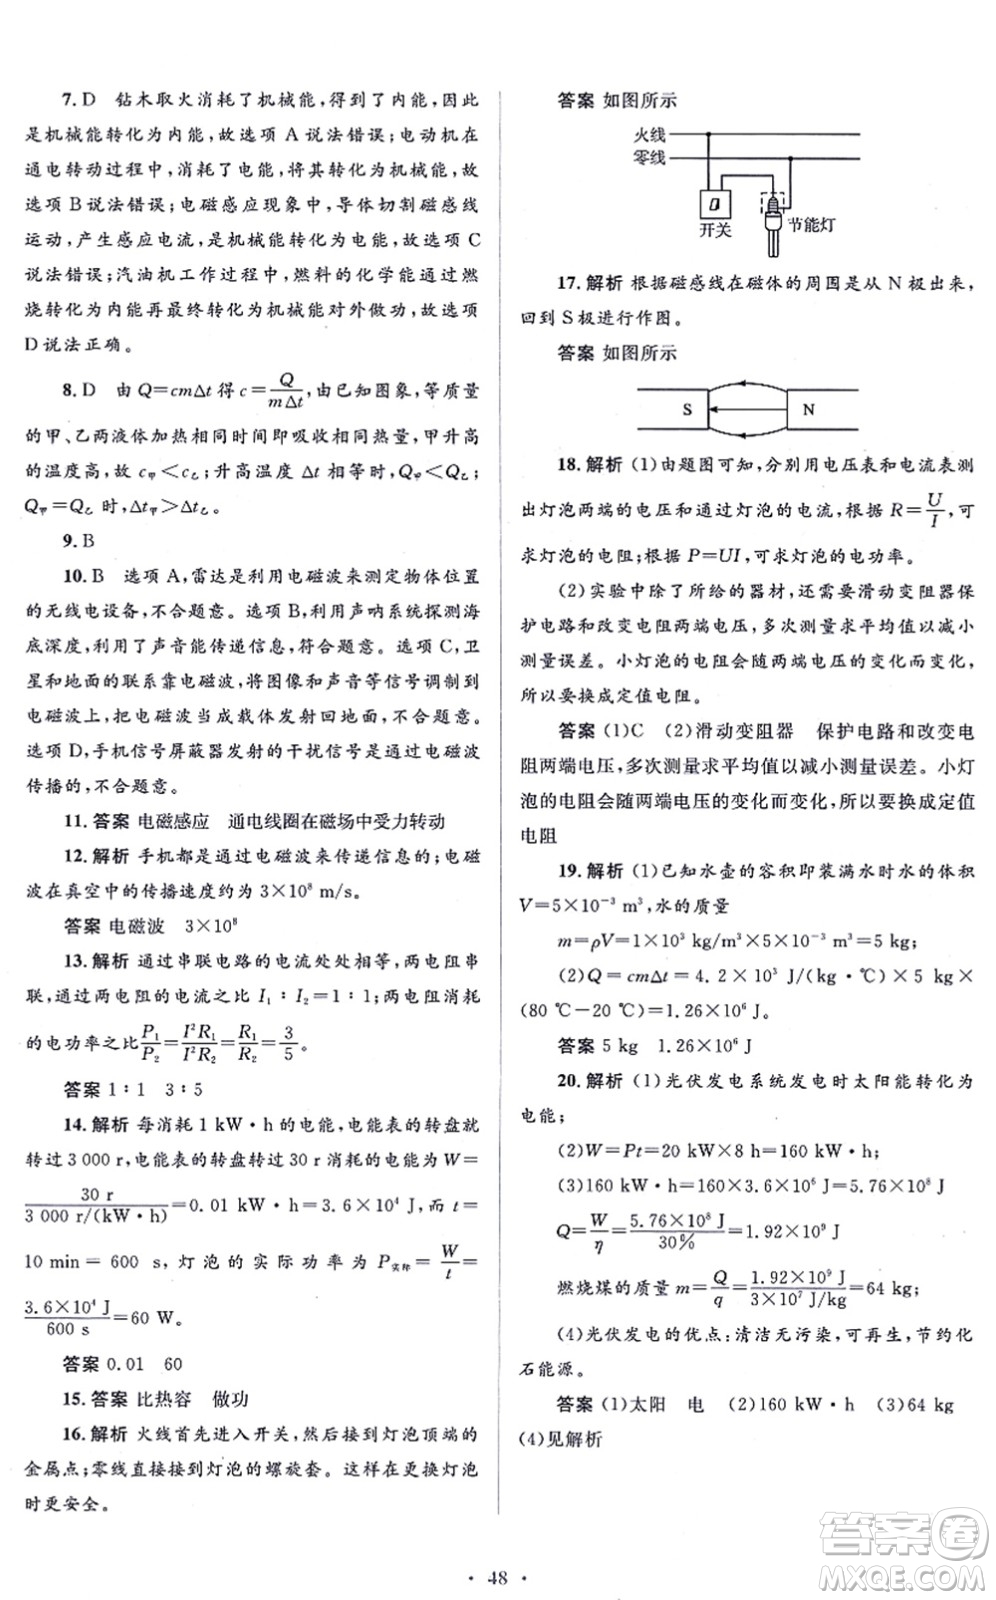 7. D 钻木取火消耗了机械能,得到了内能,因此
是机械能转化为内能,故选项 A 说法错误;电动机在
通电转动过程中,消耗了电能,将其转化为机械能,故
选项 B 说法错误;电磁感应现象中,导体切割磁感线
运动,产生感应电流,是机械能转化为电能,故选项 C
说法错误;汽油机工作过程中,燃料的化学能通过燃
烧转化为内能再最终转化为机械能对外做功,故选项
D 说法正确。
8. D 由 Q=cmΔt 得 c=Q/(mΔt),由已知图象,等质量
的甲、乙两液体加热相同时间即吸收相同热量,甲升高
的温度高,故 c甲<c乙;升高温度 Δt 相等时,Q甲<Q乙;
Q甲=Q乙 时,Δt甲>Δt乙。
9. B
10. B 选项 A,雷达是利用电磁波来测定物体位置
的无线电设备,不合题意。选项 B,利用声呐系统探测海
底深度,利用了声音能传递信息,符合题意。选项 C,卫
星和地面的联系靠电磁波,将图像和声音等信号调制到
电磁波上,把电磁波当成载体发射回地面,不合题意。
选项 D,手机信号屏蔽器发射的干扰信号是以电磁波
传播的,不合题意。
11. 答案 电磁感应 通电线圈在磁场中受力转动
12. 解析 手机都是通过电磁波来传递信息的;电磁
波在真空中的传播速度约为 3×10⁸ m/s。
答案 电磁波 3×10⁸
13. 解析 通过串联电路的电流处处相等,两电阻串
联,通过两电阻的电流之比 I₁∶I₂=1∶1;两电阻消耗
的电功率之比P₁/P₂=I²R₁/I²R₂=R₁/R₂=3/5。
答案 1∶1 3∶5
14. 解析 每消耗 1 kW·h 的电能,电能表的转盘就
转过 3 000 r,电能表的转盘转过 30 r 消耗的电能为 W=
30 r/3 000 r/(kW·h)=0.01 kW·h=3.6×10⁴ J,通电时间 t=
10 min=600 s,灯泡的实际功率为 P实际=W/t=
3.6×10⁴ J/600 s=60 W。
答案 0.01 60
15. 答案 比热容 做功
16. 解析 火线首先进入开关,然后接到灯泡顶端的
金属点;零线直接接到灯泡的螺旋套。这样在更换灯泡
时更安全。
答案 如图所示
火线
零线
开关
节能灯
17. 解析 根据磁感线在磁体的周围是从 N 极出来,
回到 S 极进行作图。
答案 如图所示
S N
18. 解析 (1)由题图可知,分别用电压表和电流表测
出灯泡两端的电压和通过灯泡的电流,根据 R=U/I,可
求灯泡的电阻;根据 P=UI,可求灯泡的电功率。
(2)实验中除了所给的器材,还需要滑动变阻器保
护电路和改变电阻两端电压,多次测量求平均值以减小
测量误差。小灯泡的电阻会随两端电压的变化而变化,
所以要换成定值电阻。
答案 (1)C (2)滑动变阻器 保护电路和改变电
阻两端电压,多次测量求平均值以减小测量误差。小灯
泡的电阻会随两端电压的变化而变化,所以要换成定值
电阻
19. 解析 (1)已知水壶的容积即装满水时水的体积
V=5×10⁻³ m³,水的质量
m=ρV=1×10³ kg/m³×5×10⁻³ m³=5 kg;
(2)Q=cmΔt=4.2×10³ J/(kg·℃)×5 kg×
(80 ℃-20 ℃)=1.26×10⁶ J。
答案 5 kg 1.26×10⁶ J
20. 解析 (1)光伏发电系统发电时太阳能转化为
电能;
(2)W=Pt=20 kW×8 h=160 kW·h;
(3)160 kW·h=160×3.6×10⁶ J=5.76×10⁸ J
Q=W/η=5.76×10⁸ J/30%=1.92×10⁹ J
燃烧煤的质量 m=Q/q=1.92×10⁹ J/3×10⁷ J/kg=64 kg;
(4)光伏发电的优点:清洁无污染,可再生,节约化
石能源。
答案 (1)太阳 电 (2)160 kW·h (3)64 kg
(4)见解析
· 48 ·
答案卷
MXQE.COM